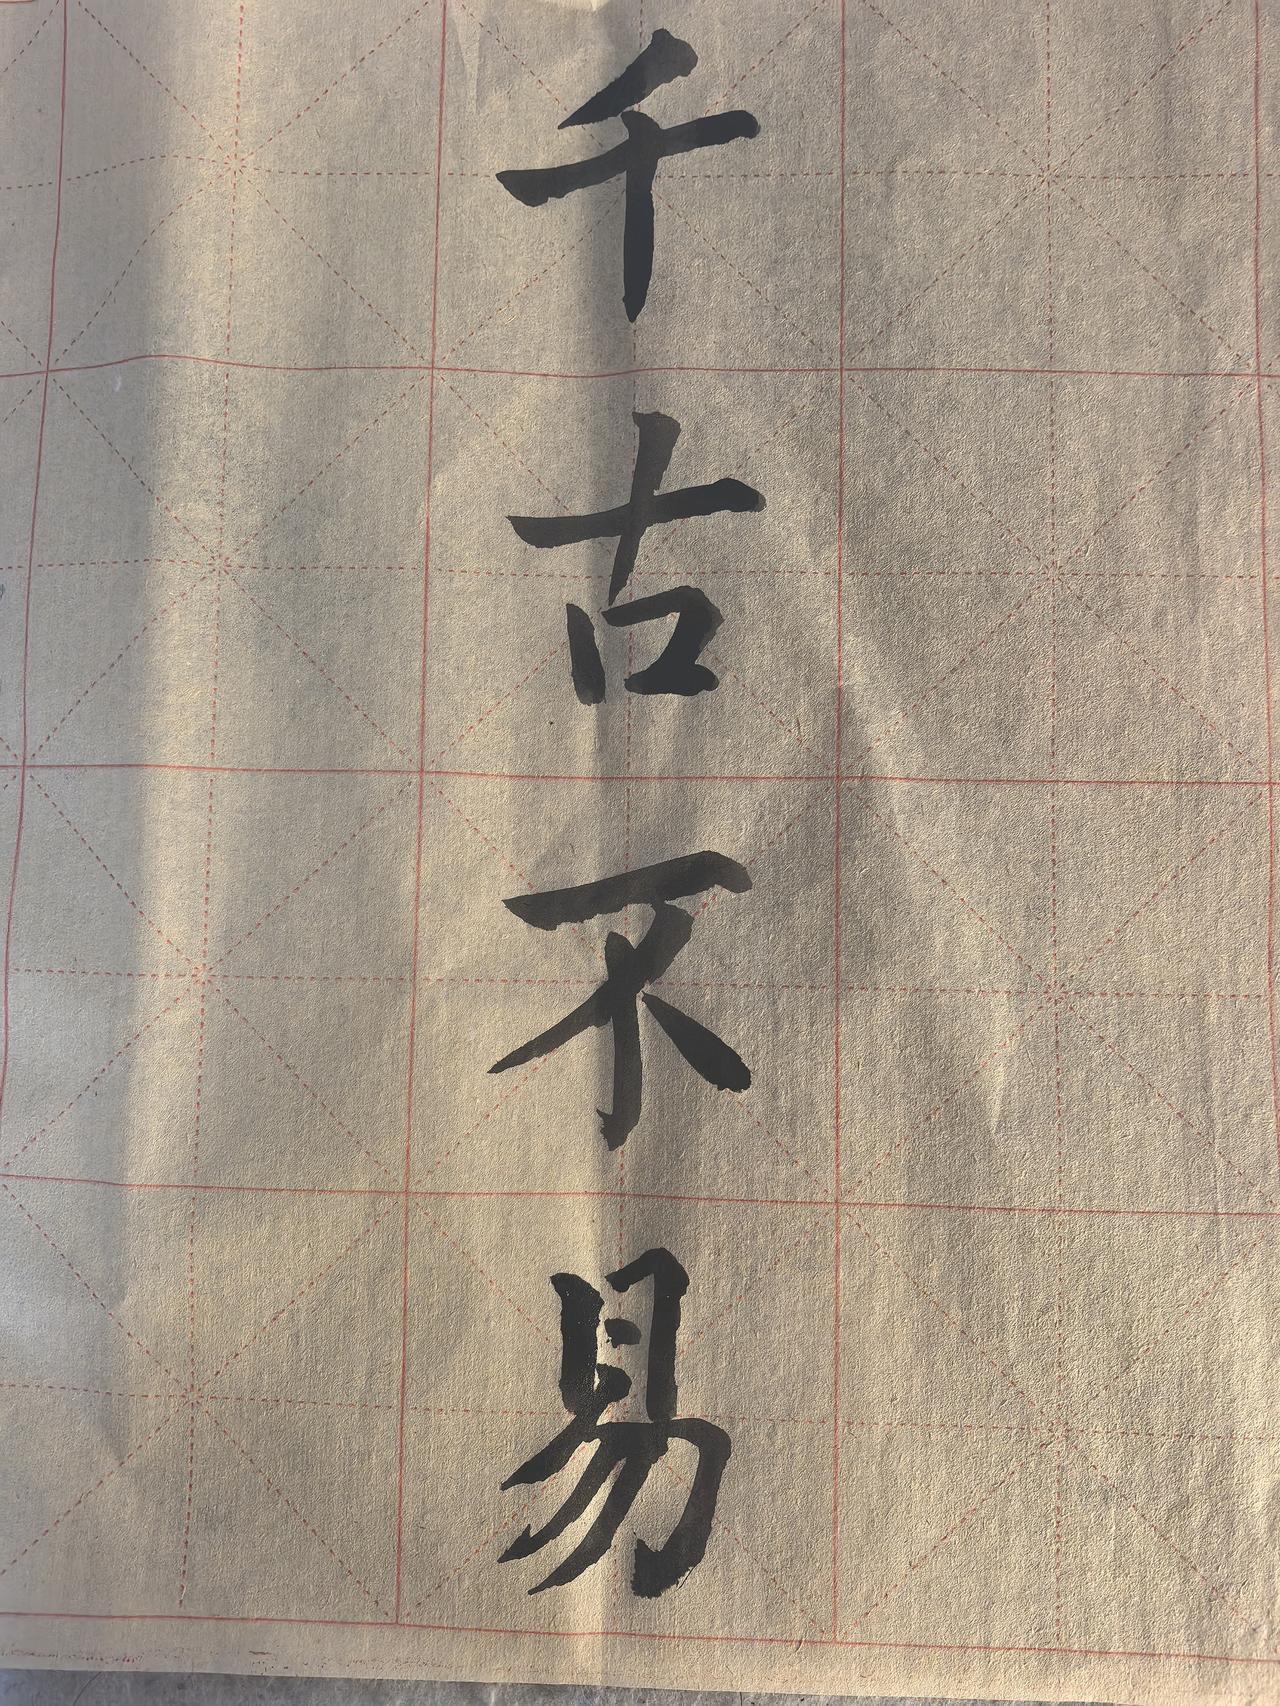 千古不易